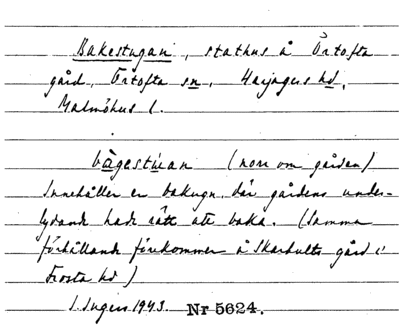 Bakestugan, stathus å Örtofta
gård, Örtofta sn, Harjagers hd,
Malmöhus l.
bagestuan (norr om gården)
Innehåller en bakugn, där gårdens under-
lydande hade rätt att baka. (Samma
förhållande förekommer å Skarhults gård i
Frosta hd)
I. Ingers 1943. Nr 5624.